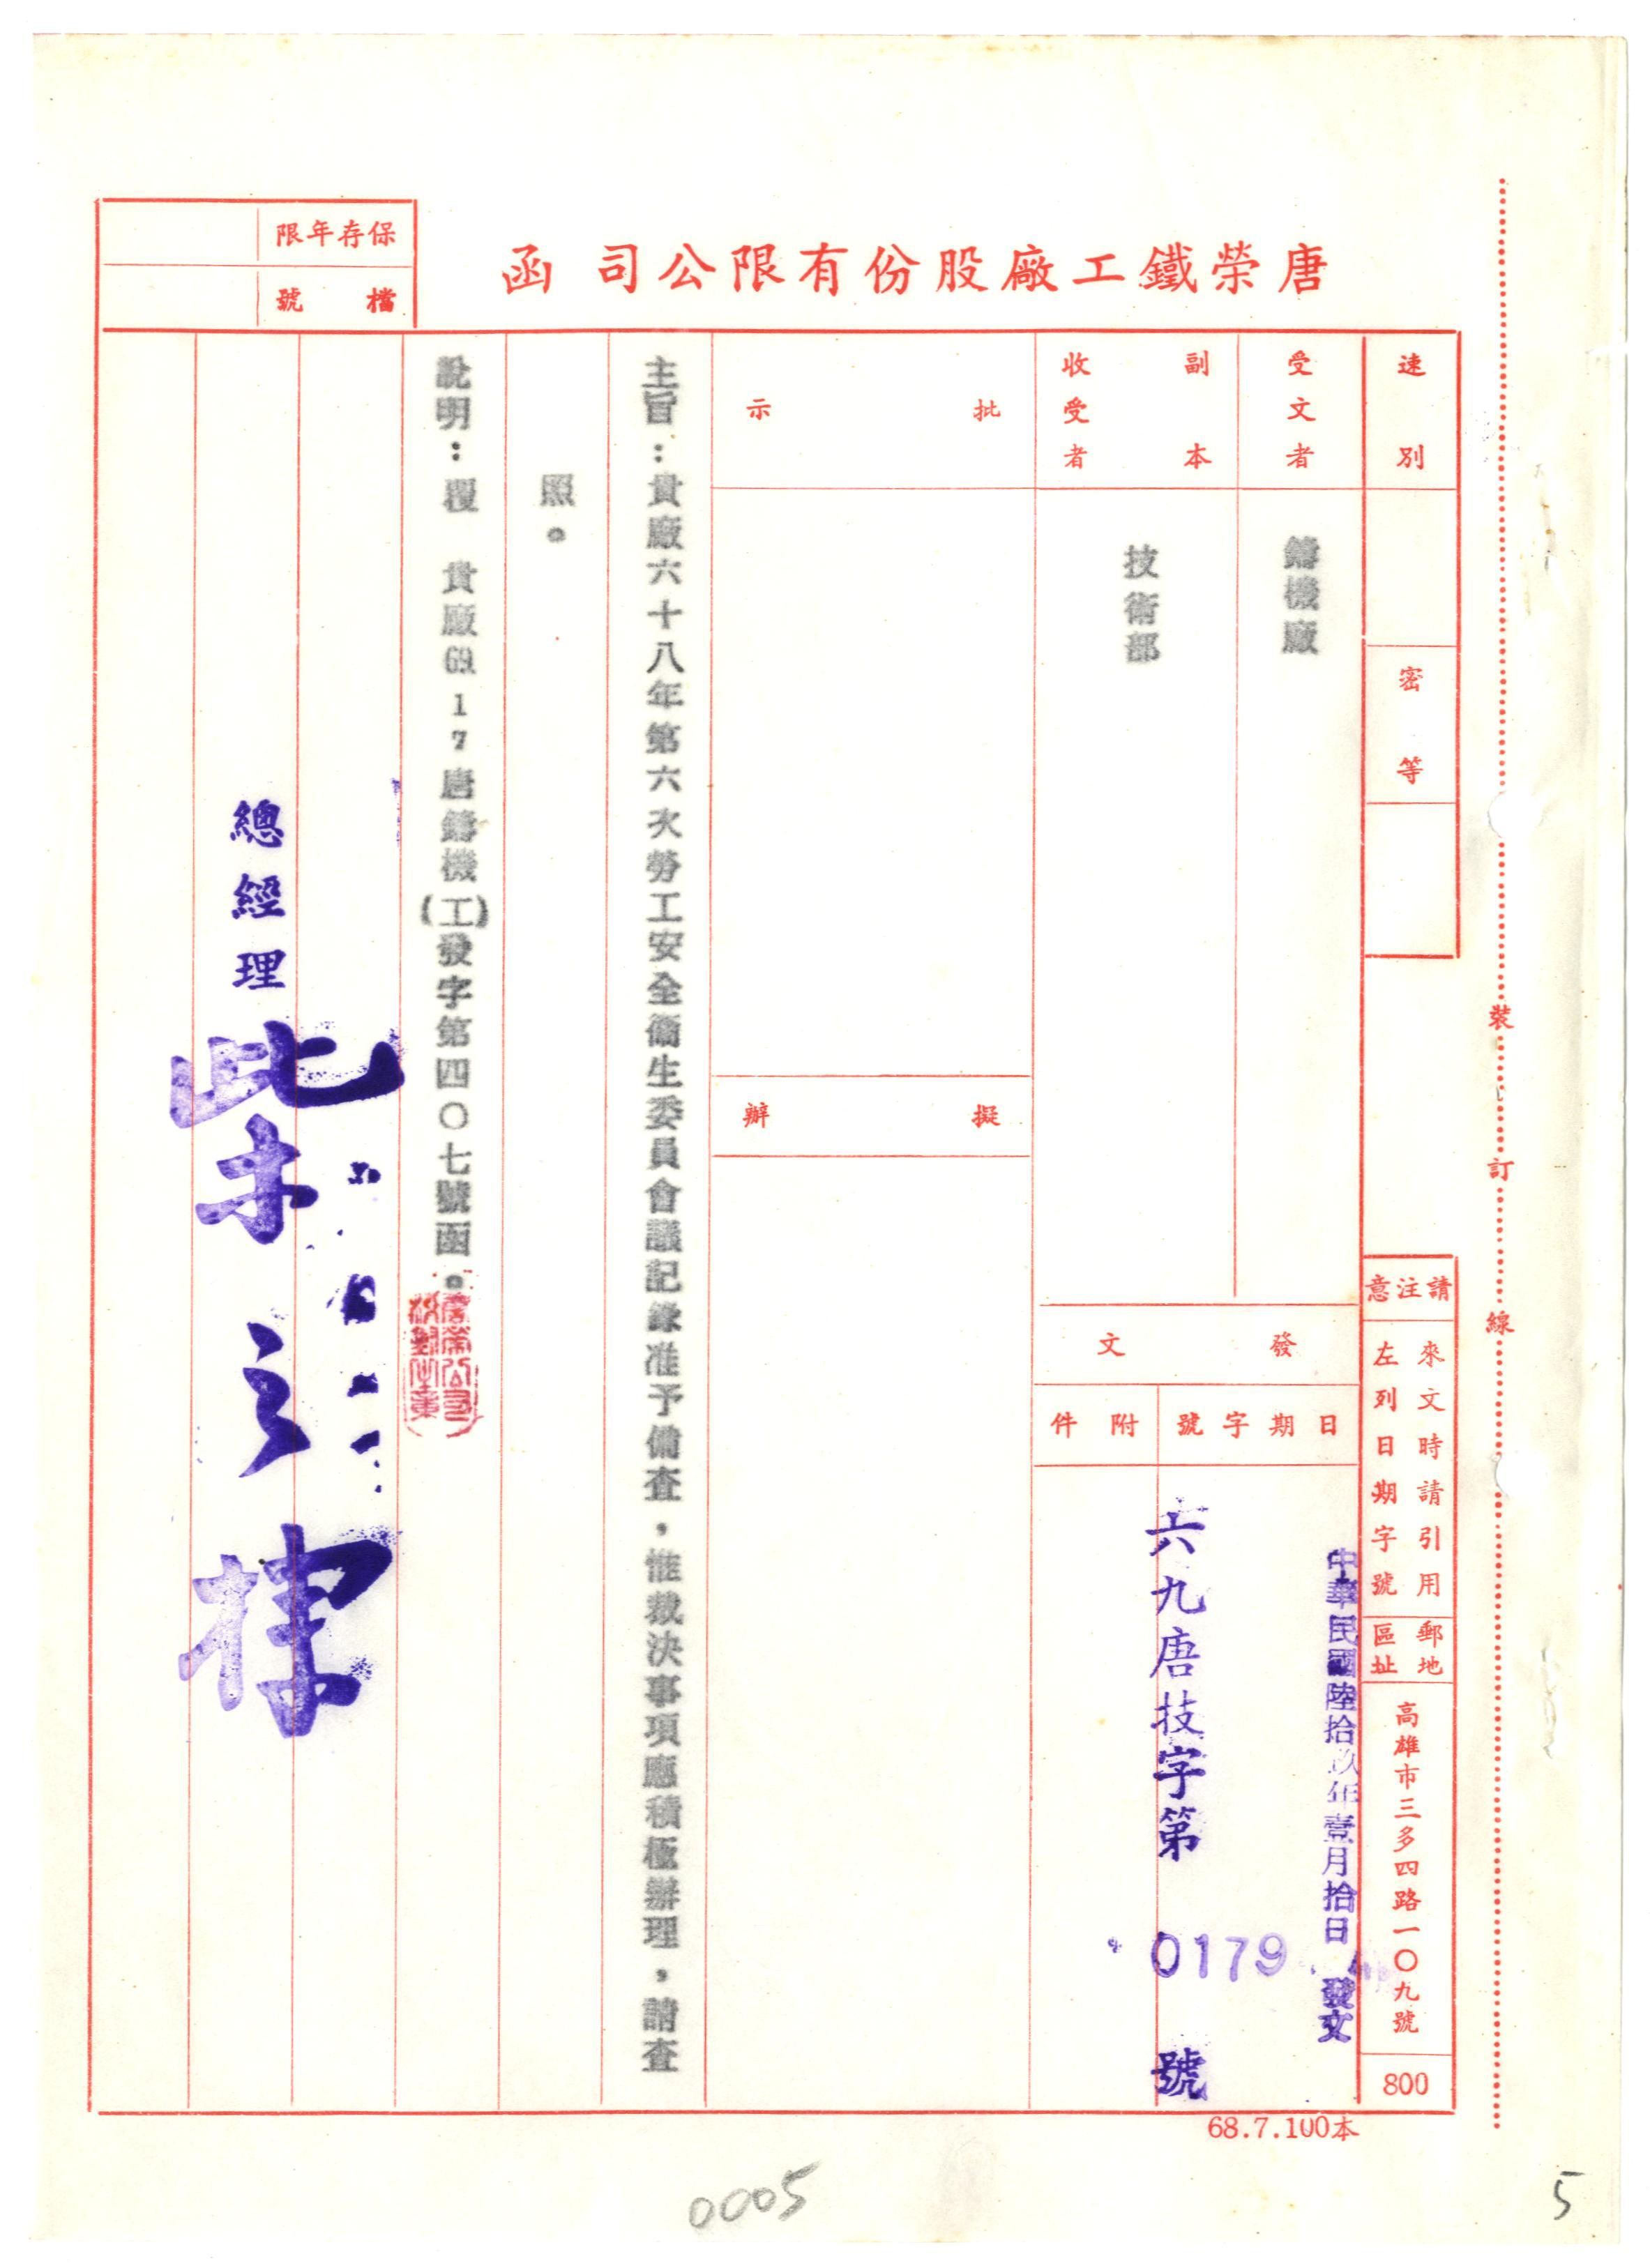 唐榮鐵工廠股份有限公司 函
保存年限
檔號
速別
密等
請注意
來文時請引用
左列日期字號
郵地
區址
高雄市三多四路一〇九號
800
受文者
鑄機廠
副本
收受者
技術部
發文
日期字號
附件
中華民國陸拾玖年壹月拾日 發文
六九唐技字第 0179 號
批示
擬辦
主旨：貴廠六十八年第六次勞工安全衛生委員會議記錄准予備查，惟裁決事項應積極辦理，請查
照。
說明：覆 貴廠69.1.7唐鑄機(工)發字第四〇七號函。
總經理
裝訂線
68.7.100本
0005
5